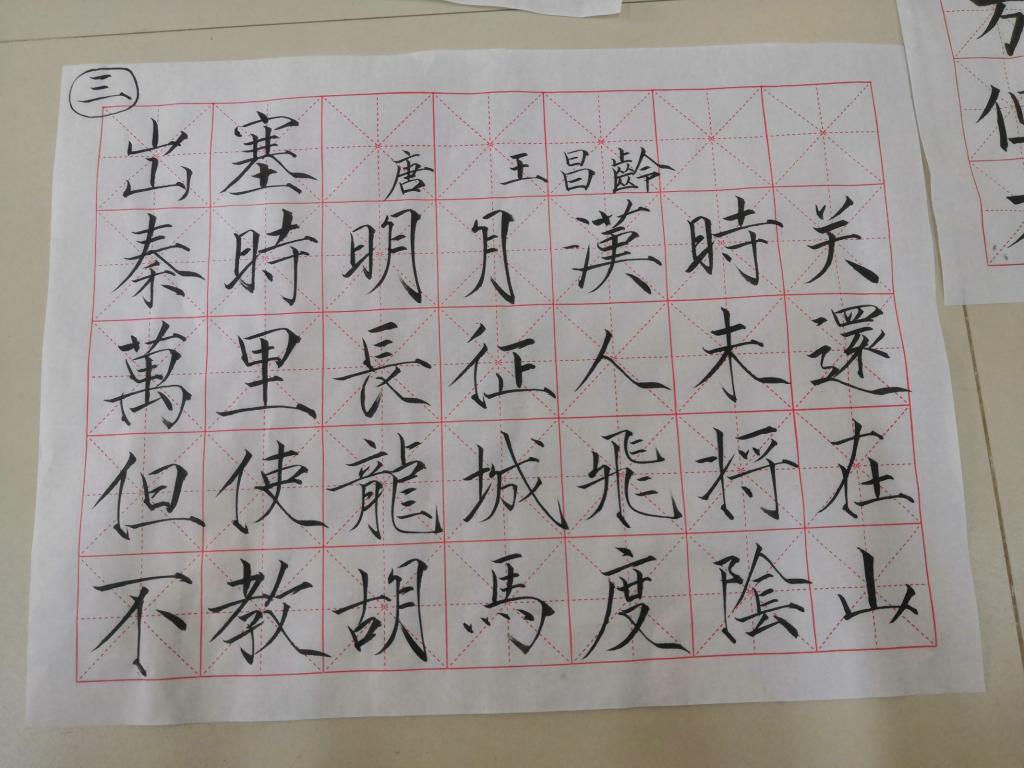 三
出塞 唐 王昌齡
秦時明月漢時关
萬里長征人未還
但使龍城飛将在
不教胡馬度陰山
但